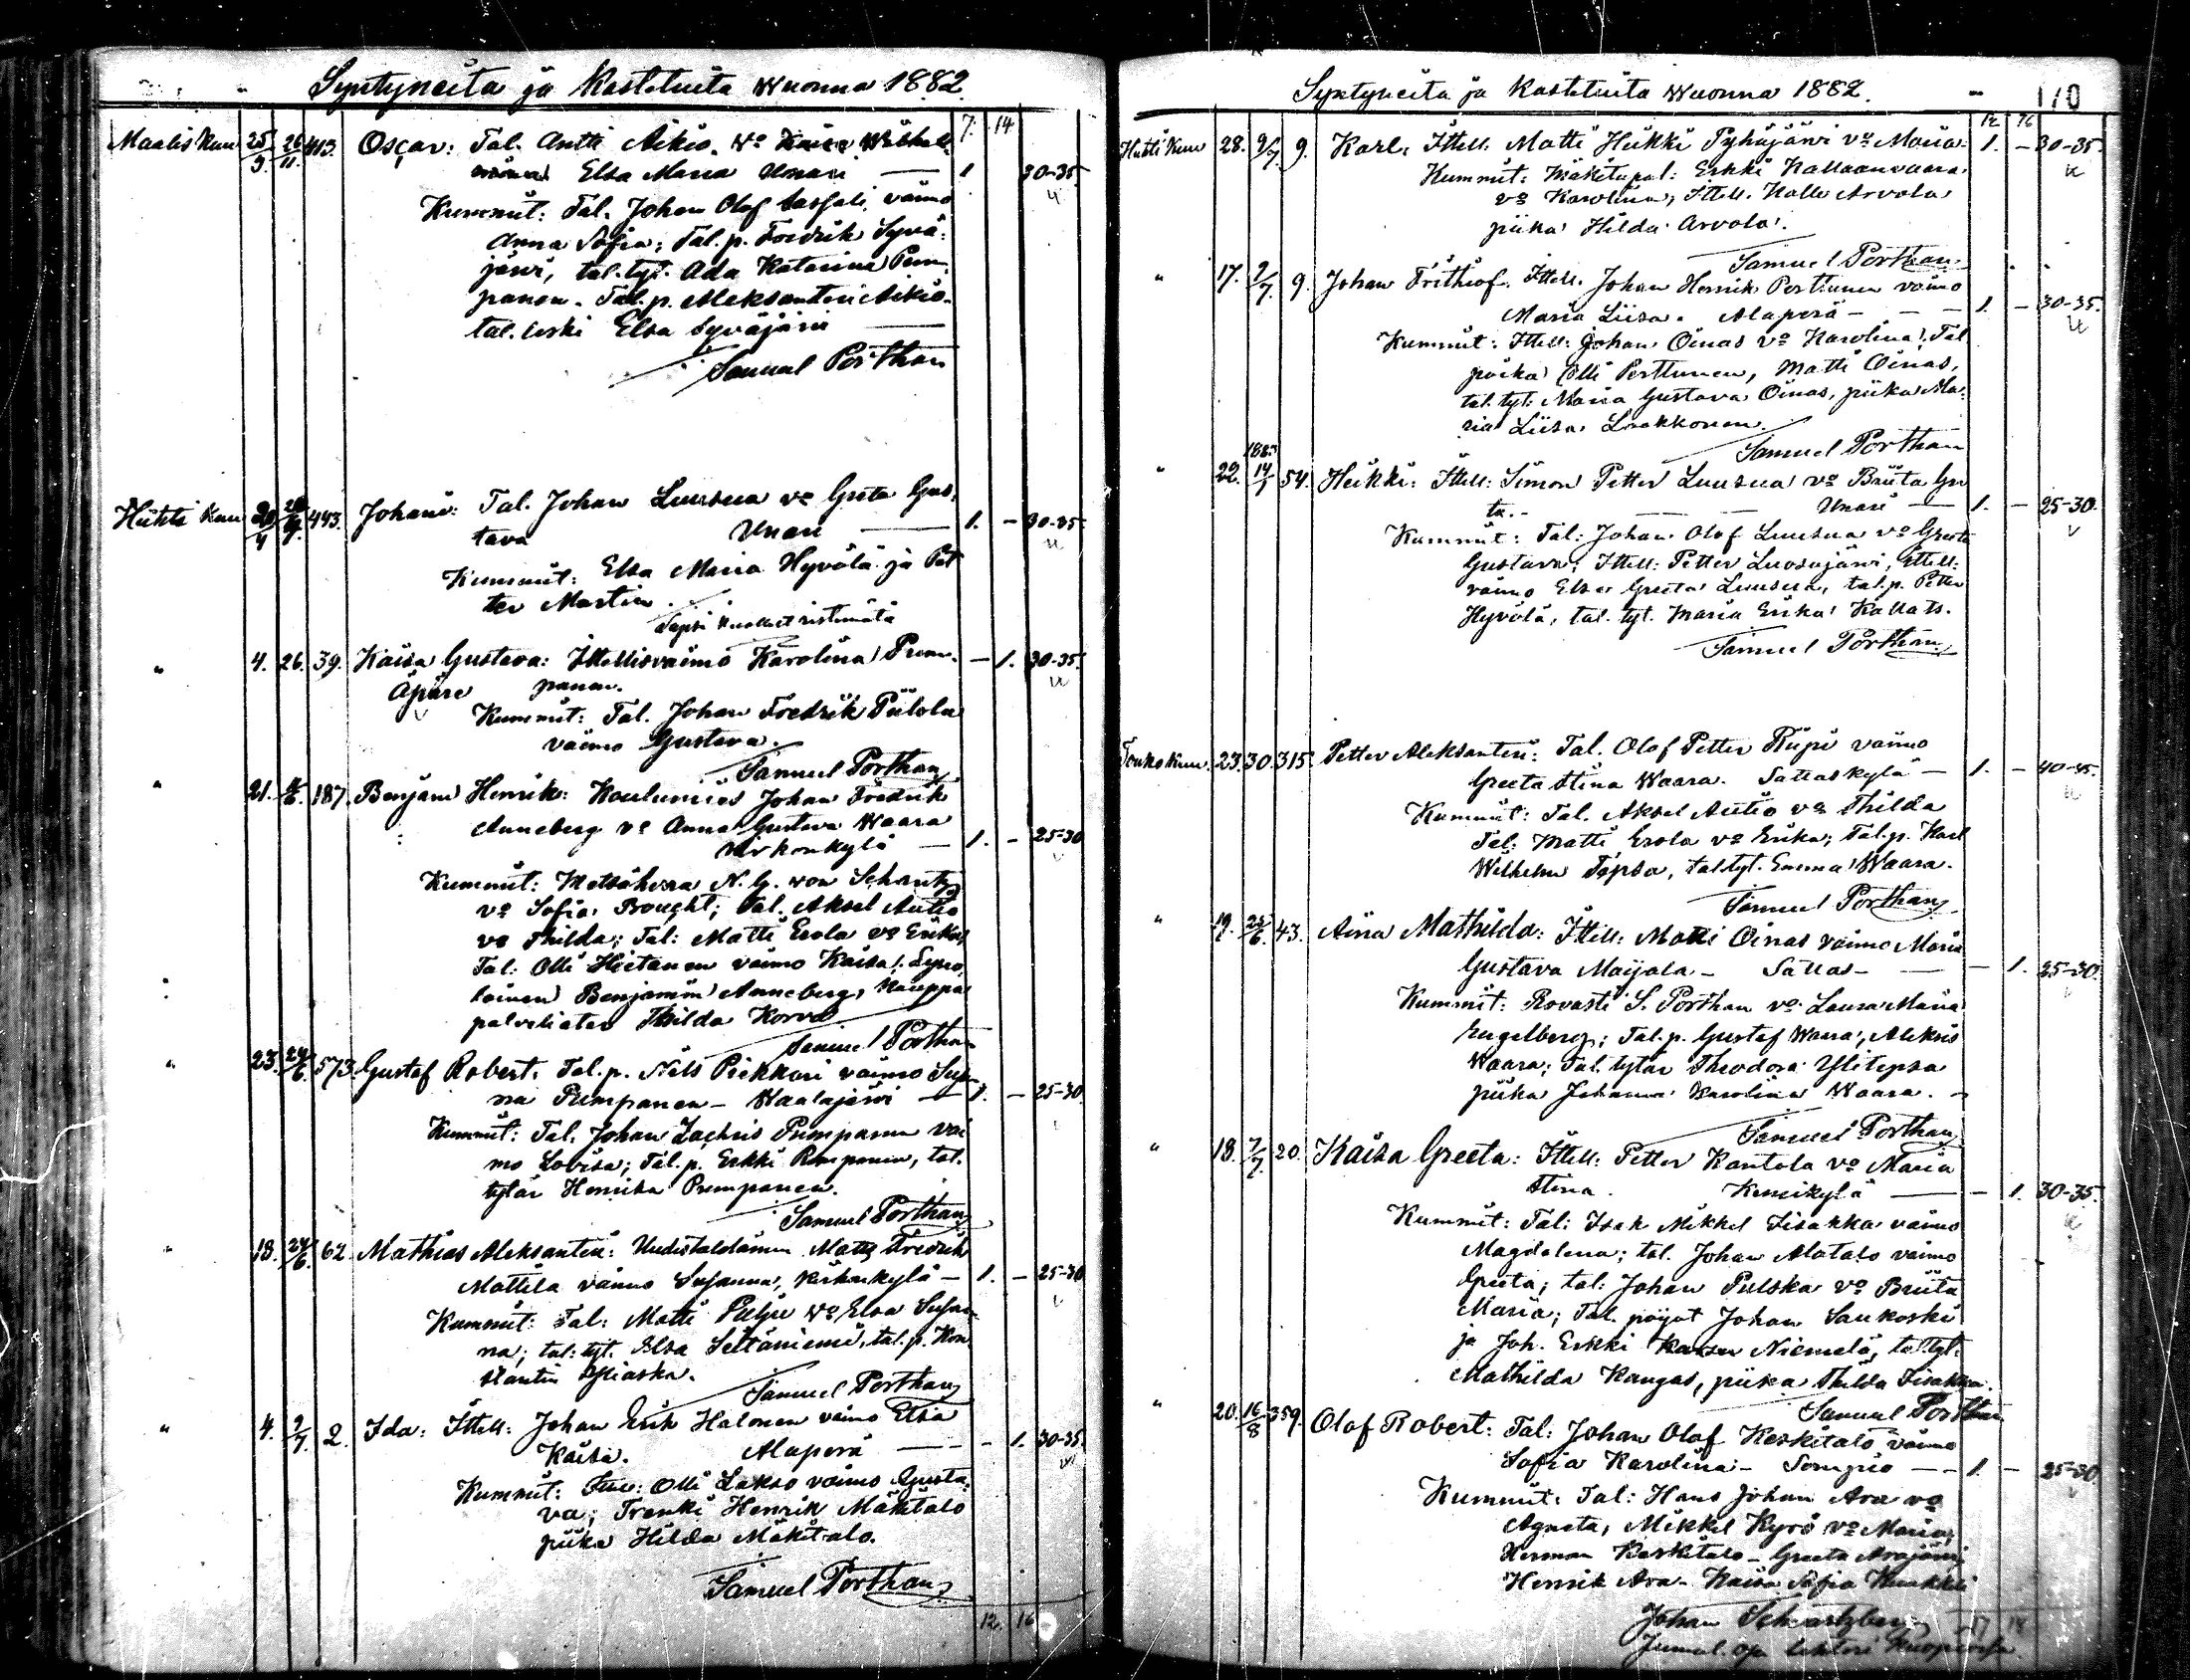 Syntyneitä ja Kastetuita Wuonna 1882.
7. 14
Maalis Kuu 25/3 26/11. 413. Oscar: Tal. Antti Aikio. Vo Kaisa
Elsa Maria Unari — 1 30-35.
Kummit: Tal. Johan Olof vaimo
Anna Sofia; Tal. p. Fredrik Syvä-
järvi, tal. tyt. Ada Katarina Pum-
panen. Tal. p. Aleksanteri Aikio.
tal. leski Elsa Syväjärvi —
Samuel Porthan
Huhti Kuu 443. Johani: Tal. Johan Luusua vo Greta Gus-
tava Unari — 1. - 30-35.
Kummit: Elsa Maria Hyvölä ja Pet
ter Martin.
Lapsi kuollut ristimätä
" 4. 26. 39. Kaisa Gustava: Ittellisvaimo Karolina Pum- - 1. 30-35.
Äpäre panen.
Kummit: Tal. Johan Fredrik Piilola
vaimo Gustava.
Samuel Porthan
" 21. 4/6. 187. Benjam Henrik: Koulumies Johan Fredrik
Anneberg vo Anna Gustava Waara
Kirkonkylä — 1. - 25-30
Kummit: Metsäherra N. G. von Schantz
vo Sofia Bought; tal. Aksel Autio
vo Thilda; Tal: Matti Erola vo Erika;
Tal: Olli Hietanen vaimo Kaisa!
Benjamin Anneberg, kauppa
palveliatar Thilda Korva
Samuel Porthan
" 23. 24/6. 573. Gustaf Robert. Tal. p. Nils Pirkkari vaimo Susan-
na Pumpanen - Waalajärvi — 1. - 25-30
Kummit: Tal. Johan Zachris Pumpanen vai
mo Lovisa; Tal. p. Erkki Pumpanen, tal.
tytär Henrika Pumpanen.
Samuel Porthan
" 18. 24/6. 62. Mathias Aleksanteri: Uudistalolainen Matts Fredrik
Mattila vaimo Susanna, Kirkonkylä — 1. - 25-30
Kummit: Tal: Matti Pulju Vo Elsa Susan-
na; tal: tyt. Elsa Seitäniemi, tal. p. Kon-
stantin Yliaska.
Samuel Porthan
" 4. 9/7 2. Ida: Ittell: Johan Erik Halonen vaimo Elsa
Kaisa. Alaperä — - 1. 30-35.
Kummit: Olli Lakso vaimo Gusta-
va; Trenki Henrik Mäkitalo
piika Hilda Mäkitalo.
Samuel Porthan
12. 16
Syntyneitä ja Kastetuita Wuonna 1882. - 110
12 16
Huhti Kuu 28. 9/7. 9. Karl: Ittell. Matti Heikki Pyhäjärvi vo Maria. 1. - 30-35.
Kummit: Mäkitupal: Erkki Kallaanvaara
vo Karolina; Ittell. Kalle Arvola
piika Hilda Arvola.
Samuel Porthan
" 17. 9/7. 9. Johan Frithiof. Ittell. Johan Henrik Perttunen vaimo
Maria Liisa. Alaperä - - - 1. - 30-35.
Kummit: Ittell: Johan Oinas vo Karolina; Tal
poika Olli Perttunen, Matti Oinas,
tal. tyt. Maria Gustava Oinas, piika Ma-
ria Liisa Laakkonen.
Samuel Porthan
1883
" 22. 14/1 54. Heikki: Ittell: Simon Petter Luusua vo Briita Gre
ta. - — — Unari — 1. - 25-30.
Kummit: Tal: Johan Olof Luusua vo Greeta
Gustava; Ittell: Petter Luosujärvi, Ittell:
vaimo Elsa Greeta Luusua, tal. p. Petter
Hyvölä, tal. tyt. Maria Erika Kallats.
Samuel Porthan
Touko Kuu. 23. 30. 315. Petter Aleksanteri: Tal. Olof Petter Riipi vaimo
Greeta Stina Waara. Sattaskylä — 1. - 40-45.
Kummit: Tal. Aksel Autio vo Thilda
Tal: Matti Erola vo Erika; Tal. p. Karl
Wilhelm Tepsa, tal. tyt. Emma Waara.
Samuel Porthan
" 19. 25/6. 43. Aina Mathilda: Ittell: Matti Oinas vaimo Maria
Gustava Maijala - Sattas - — - 1. 25-30.
Kummit: Rovasti S. Porthan vo Laura Maria
Engelberg; Tal. p. Gustaf Waara, Aleksis
Waara; Tal. tytär Theodora Ylitepsa
piika Johanna Karolina Waara. -
Samuel Porthan
" 18. 7/7. 20. Kaisa Greeta: Ittell: Petter Kantola vo Maria
Stina. Kemikylä — - 1. 30-35.
Kummit: Tal: Isak Mikkel Iisakka vaimo
Magdalena; tal. Johan Alatalo vaimo
Greeta; tal: Johan Pulska vo Briita
Maria; Tal. pojat Johan Saukoski
ja Joh. Erkki Niemelä, tal. tyt.
Mathilda Kangas, piika Thilda Iisakka.
Samuel Porthan
" 20. 16/8 359. Olof Robert: Tal: Johan Olof Keskitalo vaimo
Sofia Karolina - Sompio — 1. - 25-30
Kummit: Tal: Hans Johan Ara vo
Agneta, Mikkel Kyrö vo Maria;
Herman Keskitalo - Greeta Arajärvi
Henrik Ara - Kaisa Sofia
Johan Schwartzberg 17 14
Jumal. op. lehtori Kuopiosta.